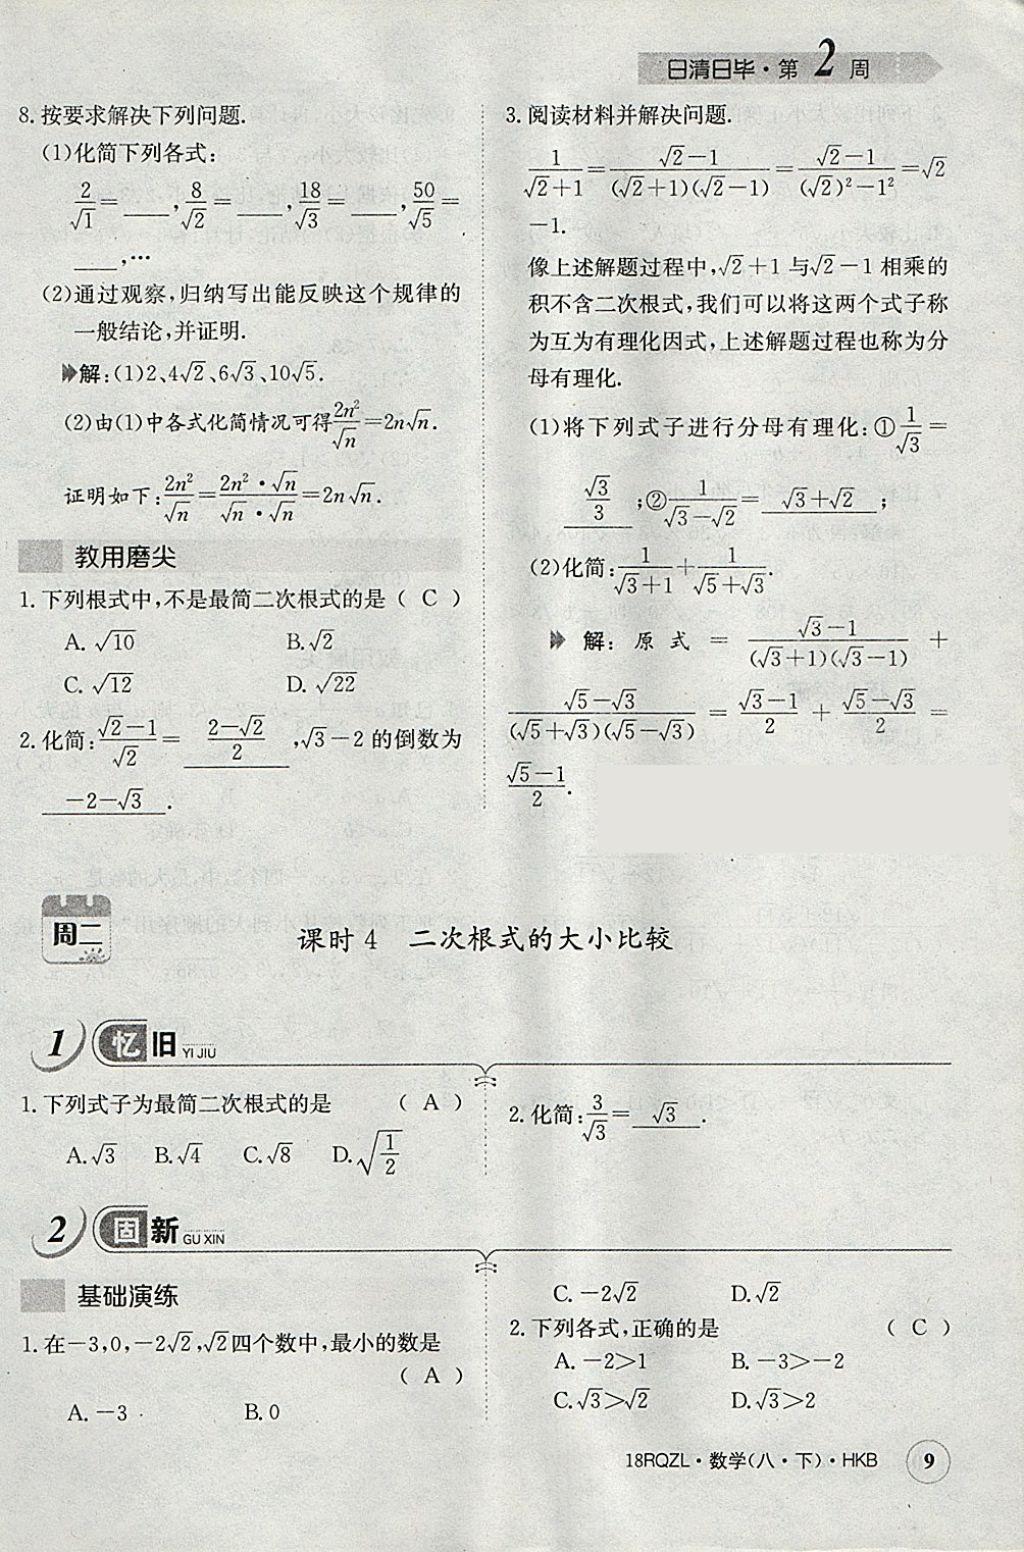 日清日毕·第2周
8.按要求解决下列问题.
(1)化简下列各式:
2/√1=___,8/√2=___,18/√3=___,50/√5=
___,…
(2)通过观察,归纳写出能反映这个规律的
一般结论,并证明.
解:(1)2、4√2、6√3、10√5.
(2)由(1)中各式化简情况可得2n²/√n=2n√n.
证明如下:2n²/√n=2n²·√n/√n·√n=2n√n.
教用磨尖
1.下列根式中,不是最简二次根式的是( C )
A.√10 B.√2
C.√12 D.√22
2.化简:(√2-1)/√2= (2-√2)/2 ,√3-2的倒数为
-2-√3 .
3.阅读材料并解决问题.
1/(√2+1)=(√2-1)/((√2+1)(√2-1))=(√2-1)/((√2)²-1²)=√2
-1.
像上述解题过程中,√2+1与√2-1相乘的
积不含二次根式,我们可以将这两个式子称
为互为有理化因式,上述解题过程也称为分
母有理化.
(1)将下列式子进行分母有理化:①1/√3=
√3/3 ;②1/(√3-√2)= √3+√2 ;
(2)化简:1/(√3+1)+1/(√5+√3).
解:原式=(√3-1)/((√3+1)(√3-1))+
(√5-√3)/((√5+√3)(√5-√3))=(√3-1)/2+(√5-√3)/2=
(√5-1)/2.
周二
课时4 二次根式的大小比较
1 忆旧 YI JIU
1.下列式子为最简二次根式的是 ( A )
A.√3 B.√4 C.√8 D.√(1/2)
2.化简:3/√3= √3 .
2 固新 GU XIN
基础演练
1.在-3,0,-2√2,√2四个数中,最小的数是
( A )
A.-3 B.0
C.-2√2 D.√2
2.下列各式,正确的是 ( C )
A.-2>1 B.-3>-2
C.√3>√2 D.√3>2
18RQZL·数学(八·下)·HKB 9